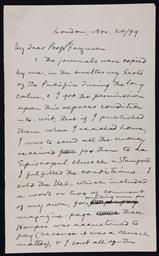 London, Nov. 20/99
My dear Prof. Ferguson:
1. The journals were copied
by me, in the sweltering heats
of the Pacific during the long
calm, & I got the permission
upon this express condition
— to wit, that if I published
them when I reached home,
I was to send all the money
received to an
Episcopal church in Stamford.
I fulfilled the conditions. I
sold the MS, which included
a word or two of comment
of my own, for
magazine-page than
Harper was accustomed to
pay (because it was a church
matter), & I sent all of the